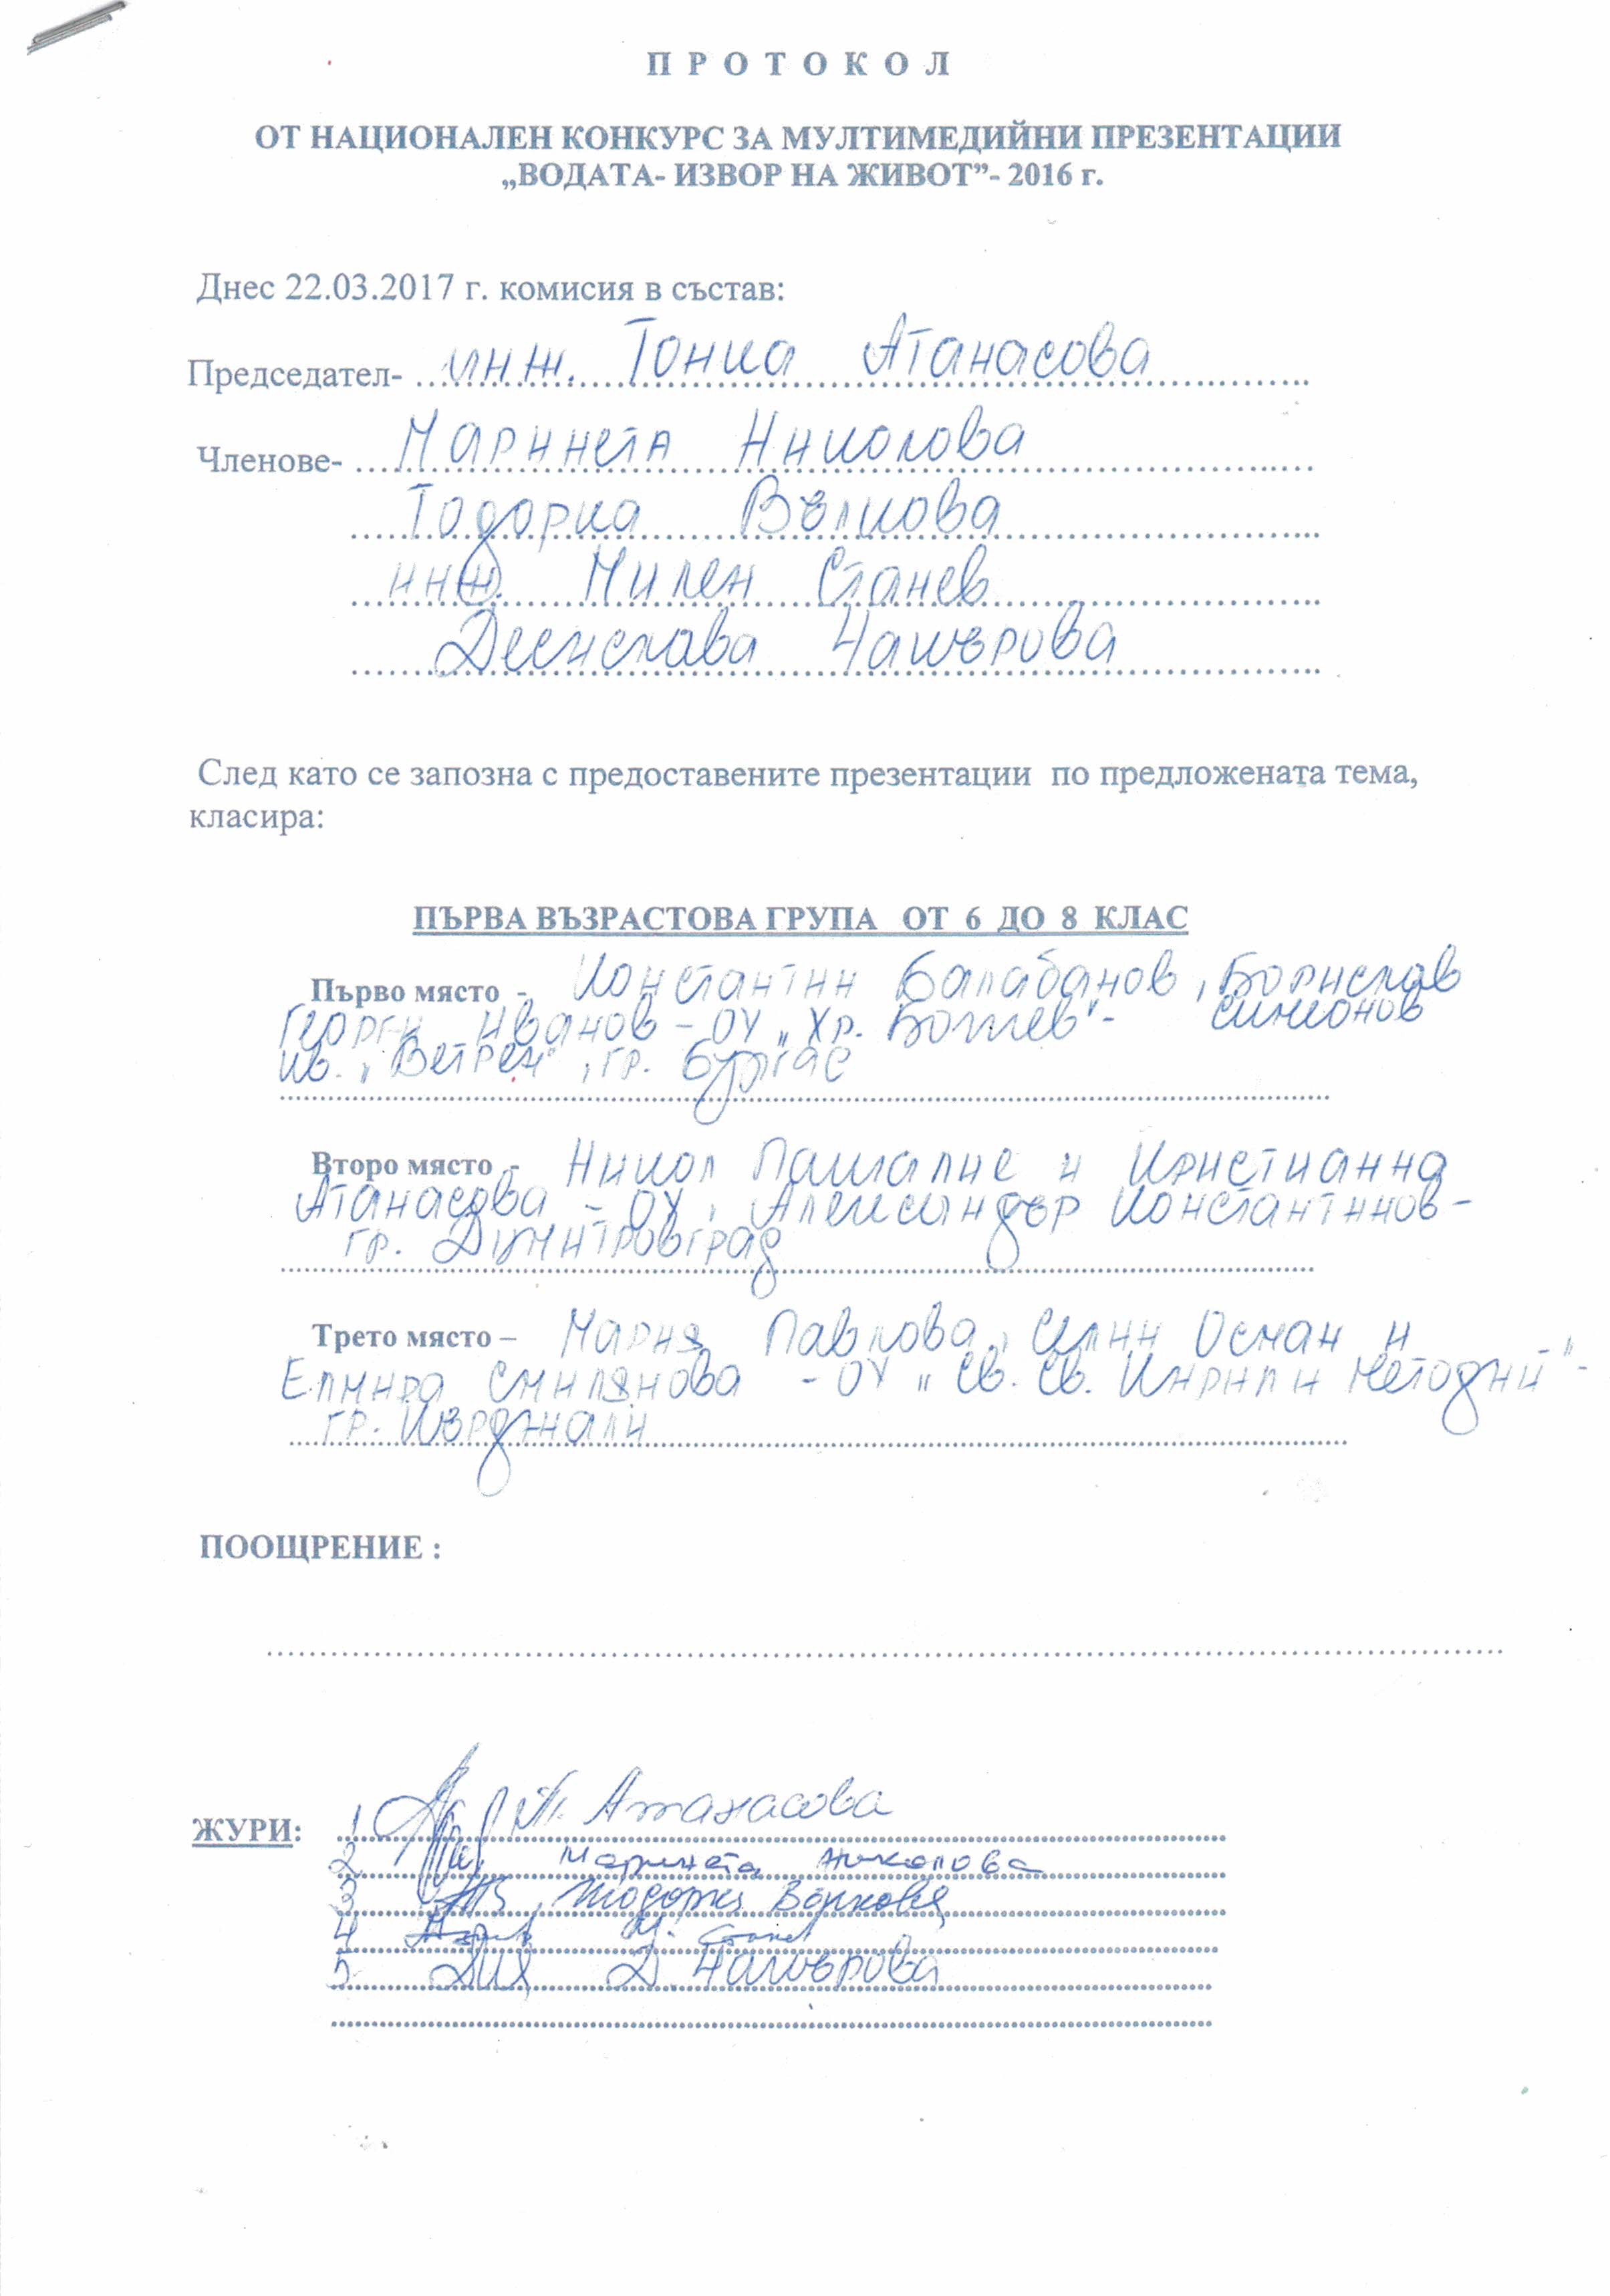 П Р О Т О К О Л
ОТ НАЦИОНАЛЕН КОНКУРС ЗА МУЛТИМЕДИЙНИ ПРЕЗЕНТАЦИИ
„ВОДАТА- ИЗВОР НА ЖИВОТ”- 2016 г.
Днес 22.03.2017 г. комисия в състав:
Председател- инж. Тонка Атанасова
Членове- Маринета Николова
Тодорка Вълкова
инж. Милен Станев
Десислава Чакърова
След като се запозна с предоставените презентации по предложената тема,
класира:
ПЪРВА ВЪЗРАСТОВА ГРУПА ОТ 6 ДО 8 КЛАС
Първо място - Константин Балабанов, Борислав
Георги Иванов – ОУ „Хр. Ботев"- Симеонов
кв. „Ветрен", гр. Бургас
Второ място - Никол Пашалие и Кристианна
Атанасова - ОУ „Александър Константинов -
гр. Димитровград
Трето място – Мария Павлова, Селин Осман и
Елмира Смилянова - ОУ „Св. Св. Кирил и Методий"-
гр. Кърджали
ПООЩРЕНИЕ :
ЖУРИ: 1 Т. Атанасова
2 Маринета Николова
3 Тодорка Вълкова
4 М. Станев
5 Д. Чакърова